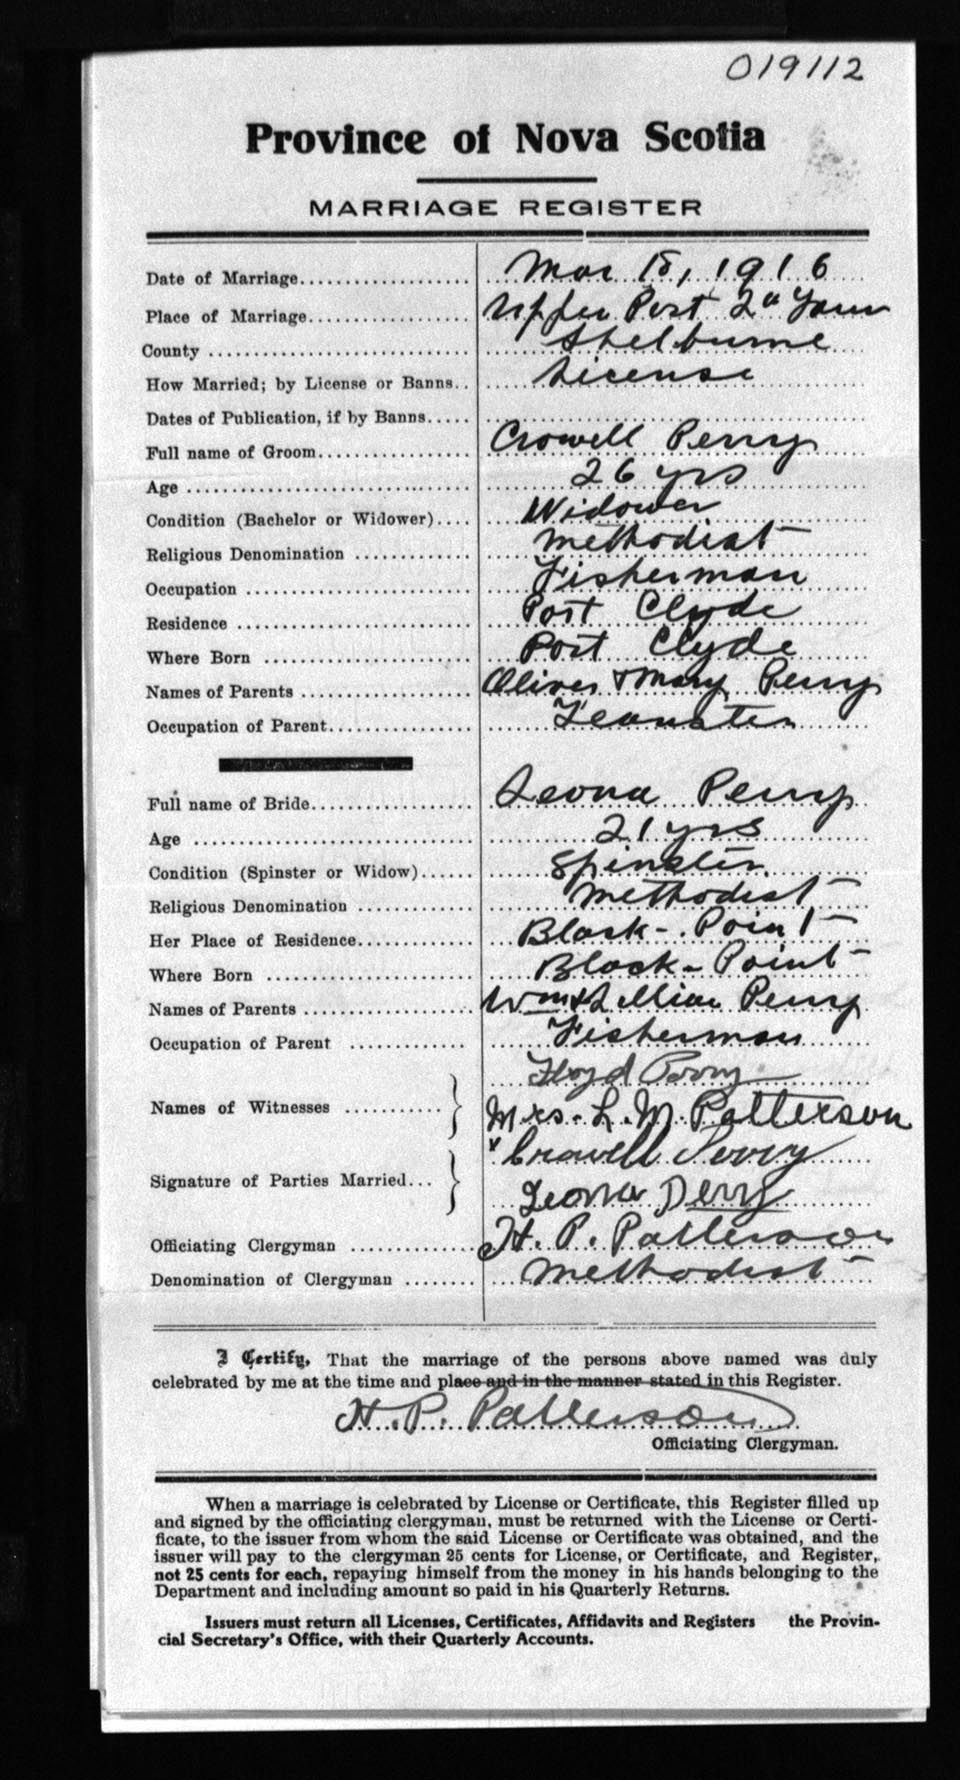 019112
Province of Nova Scotia
MARRIAGE REGISTER
Date of Marriage Mar 18, 1916
Place of Marriage Upper Port La Tour
County Shelburne
How Married; by License or Banns License
Dates of Publication, if by Banns
Full name of Groom Crowell Perry
Age 26 yrs
Condition (Bachelor or Widower) Widower
Religious Denomination Methodist
Occupation Fisherman
Residence Port Clyde
Where Born Port Clyde
Names of Parents Oliver & Mary Perry
Occupation of Parent Teamster
Full name of Bride Leona Perry
Age 21 yrs
Condition (Spinster or Widow) Spinster
Religious Denomination Methodist
Her Place of Residence Black-Point
Where Born Black-Point
Names of Parents Wm & Lillian Perry
Occupation of Parent Fisherman
Names of Witnesses Floyd Perry
Mrs. L. M. Patterson
Signature of Parties Married x Crowell Perry
Leona Perry
Officiating Clergyman H. P. Patterson
Denomination of Clergyman Methodist
I Certify, That the marriage of the persons above named was duly
celebrated by me at the time and place and in the manner stated in this Register.
H. P. Patterson
Officiating Clergyman.
When a marriage is celebrated by License or Certificate, this Register filled up
and signed by the officiating clergyman, must be returned with the License or Certi-
ficate, to the issuer from whom the said License or Certificate was obtained, and the
issuer will pay to the clergyman 25 cents for License, or Certificate, and Register,
not 25 cents for each, repaying himself from the money in his hands belonging to the
Department and including amount so paid in his Quarterly Returns.
Issuers must return all Licenses, Certificates, Affidavits and Registers the Provin-
cial Secretary's Office, with their Quarterly Accounts.